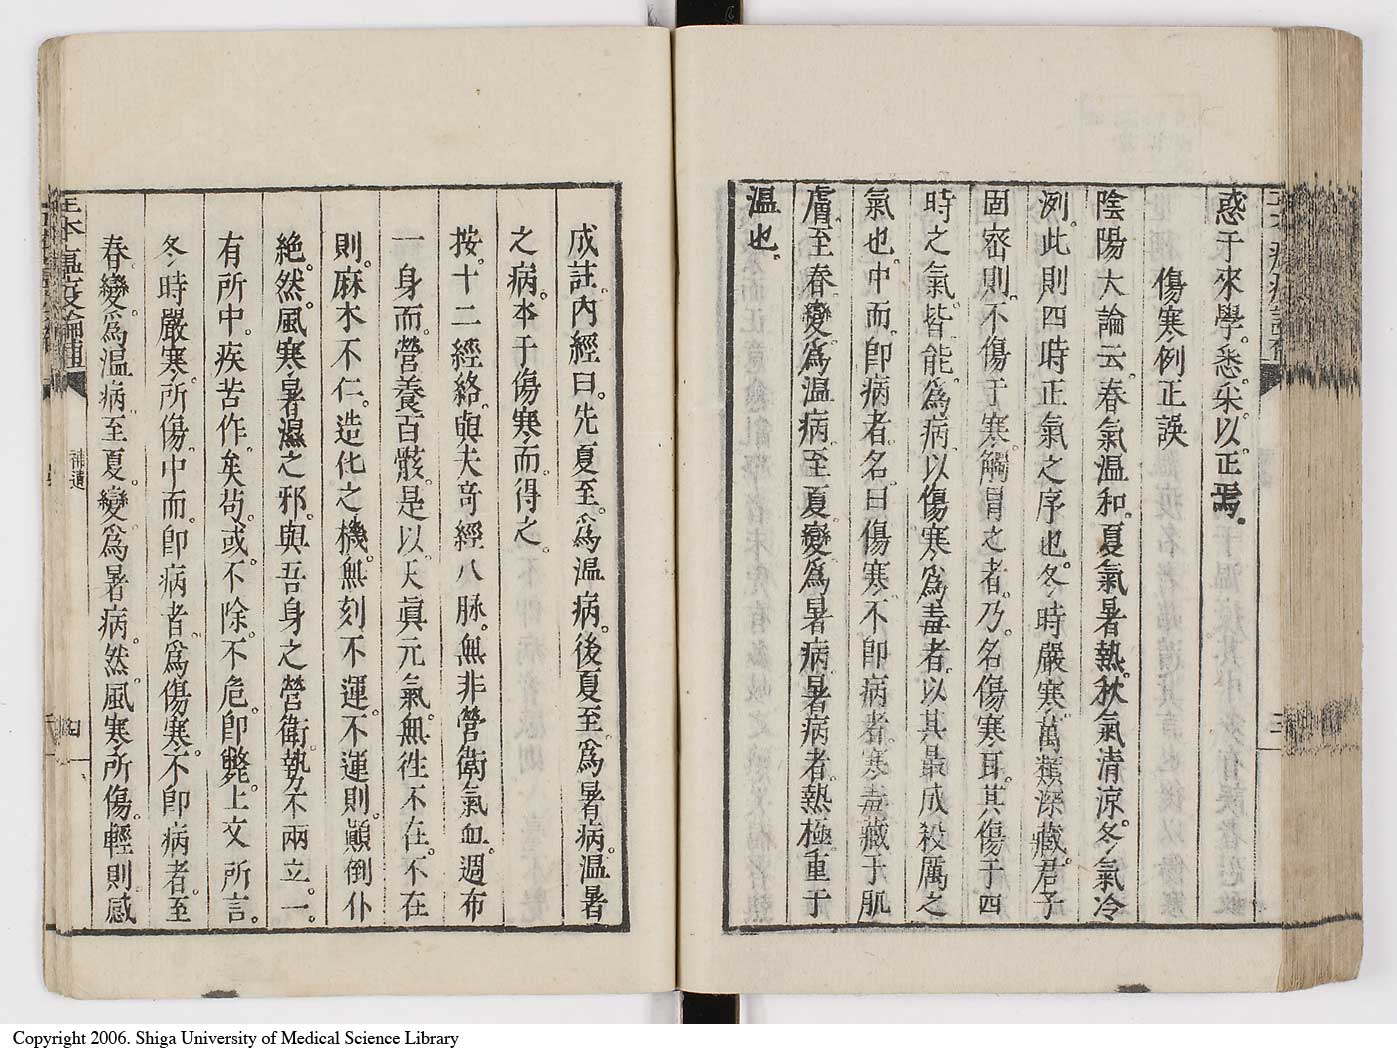 惑于來學。悉采以正焉。
傷寒例正誤
陰陽大論云。春氣温和。夏氣暑熱。秋氣清涼。冬氣冷
冽。此則四時正氣之序也。冬時嚴寒。萬類深藏。君子
固密。則不傷于寒。觸冒之者。乃名傷寒耳。其傷于四
時之氣。皆能爲病。以傷寒爲毒者。以其最成殺厲之
氣也。中而即病者。名曰傷寒。不即病者。寒毒藏于肌
膚。至春變爲温病。至夏變爲暑病。暑病者。熱極重于
温也。
成註。内經曰。先夏至。爲温病。後夏至。爲暑病。温暑
之病。本于傷寒而得之。
按。十二經絡。與夫奇經八脉。無非營衛氣血。週布
一身。而營養百骸。是以天眞元氣。無徃不在。不在
則麻木不仁。造化之機。無刻不運。不運則顚倒仆
絶。然風寒暑濕之邪。與吾身之營衛。勢不兩立。一
有所中。疾苦作矣。苟或不除。不危即斃。上文所言。
冬時嚴寒所傷。中而即病者。爲傷寒。不即病者。至
春變爲温病。至夏變爲暑病。然風寒所傷。輕則感
温疫論
補遺
四
Copyright 2006. Shiga University of Medical Science Library